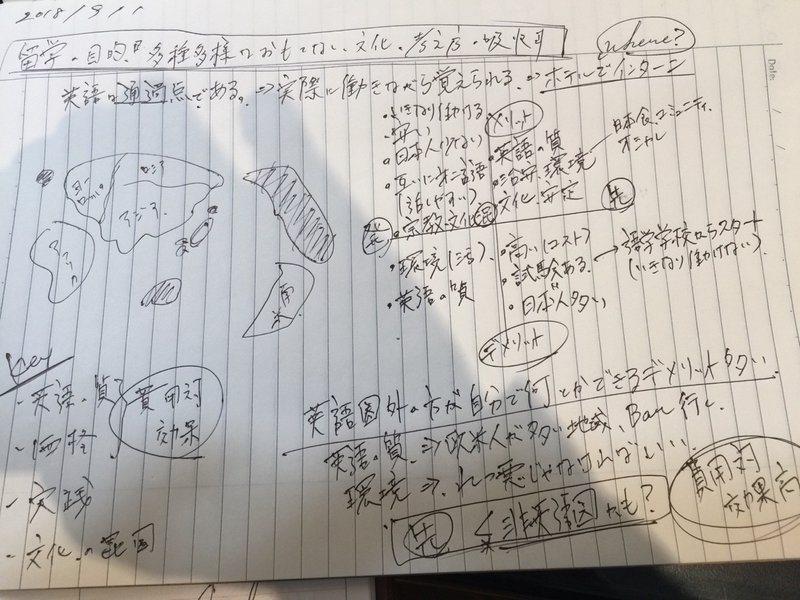 2018/9/1
留学の目的は多種多様なおもてなし、文化、考え方の吸収
where?
英語は通過点である。⇒実際に働きながら覚えられる⇒ホテルでインターン
・いきなり働ける
・安い
・日本人少ない
・互いに第二言語
(話しやすい)
・宗教文化
・環境(治)
・英語の質
メリット
・英語の質
・治安、環境
文化、安定
日本食コミュニティ
先
・高い(コスト)
・試験ある
・日本人多い
→語学学校からスタート
(いきなり働けない)
デメリット
ヨーロッパ
ロシア
アジア
アフリカ
南米
Key
・英語の質
・価格
・実践
・文化の
費用対
効果
英語圏外の方が自分で何とかできるデメリット多い
英語の質⇒欧米人が多い地域、Bar行く
環境⇒れつ悪じゃなければいい
先 かも?
費用対
効果高